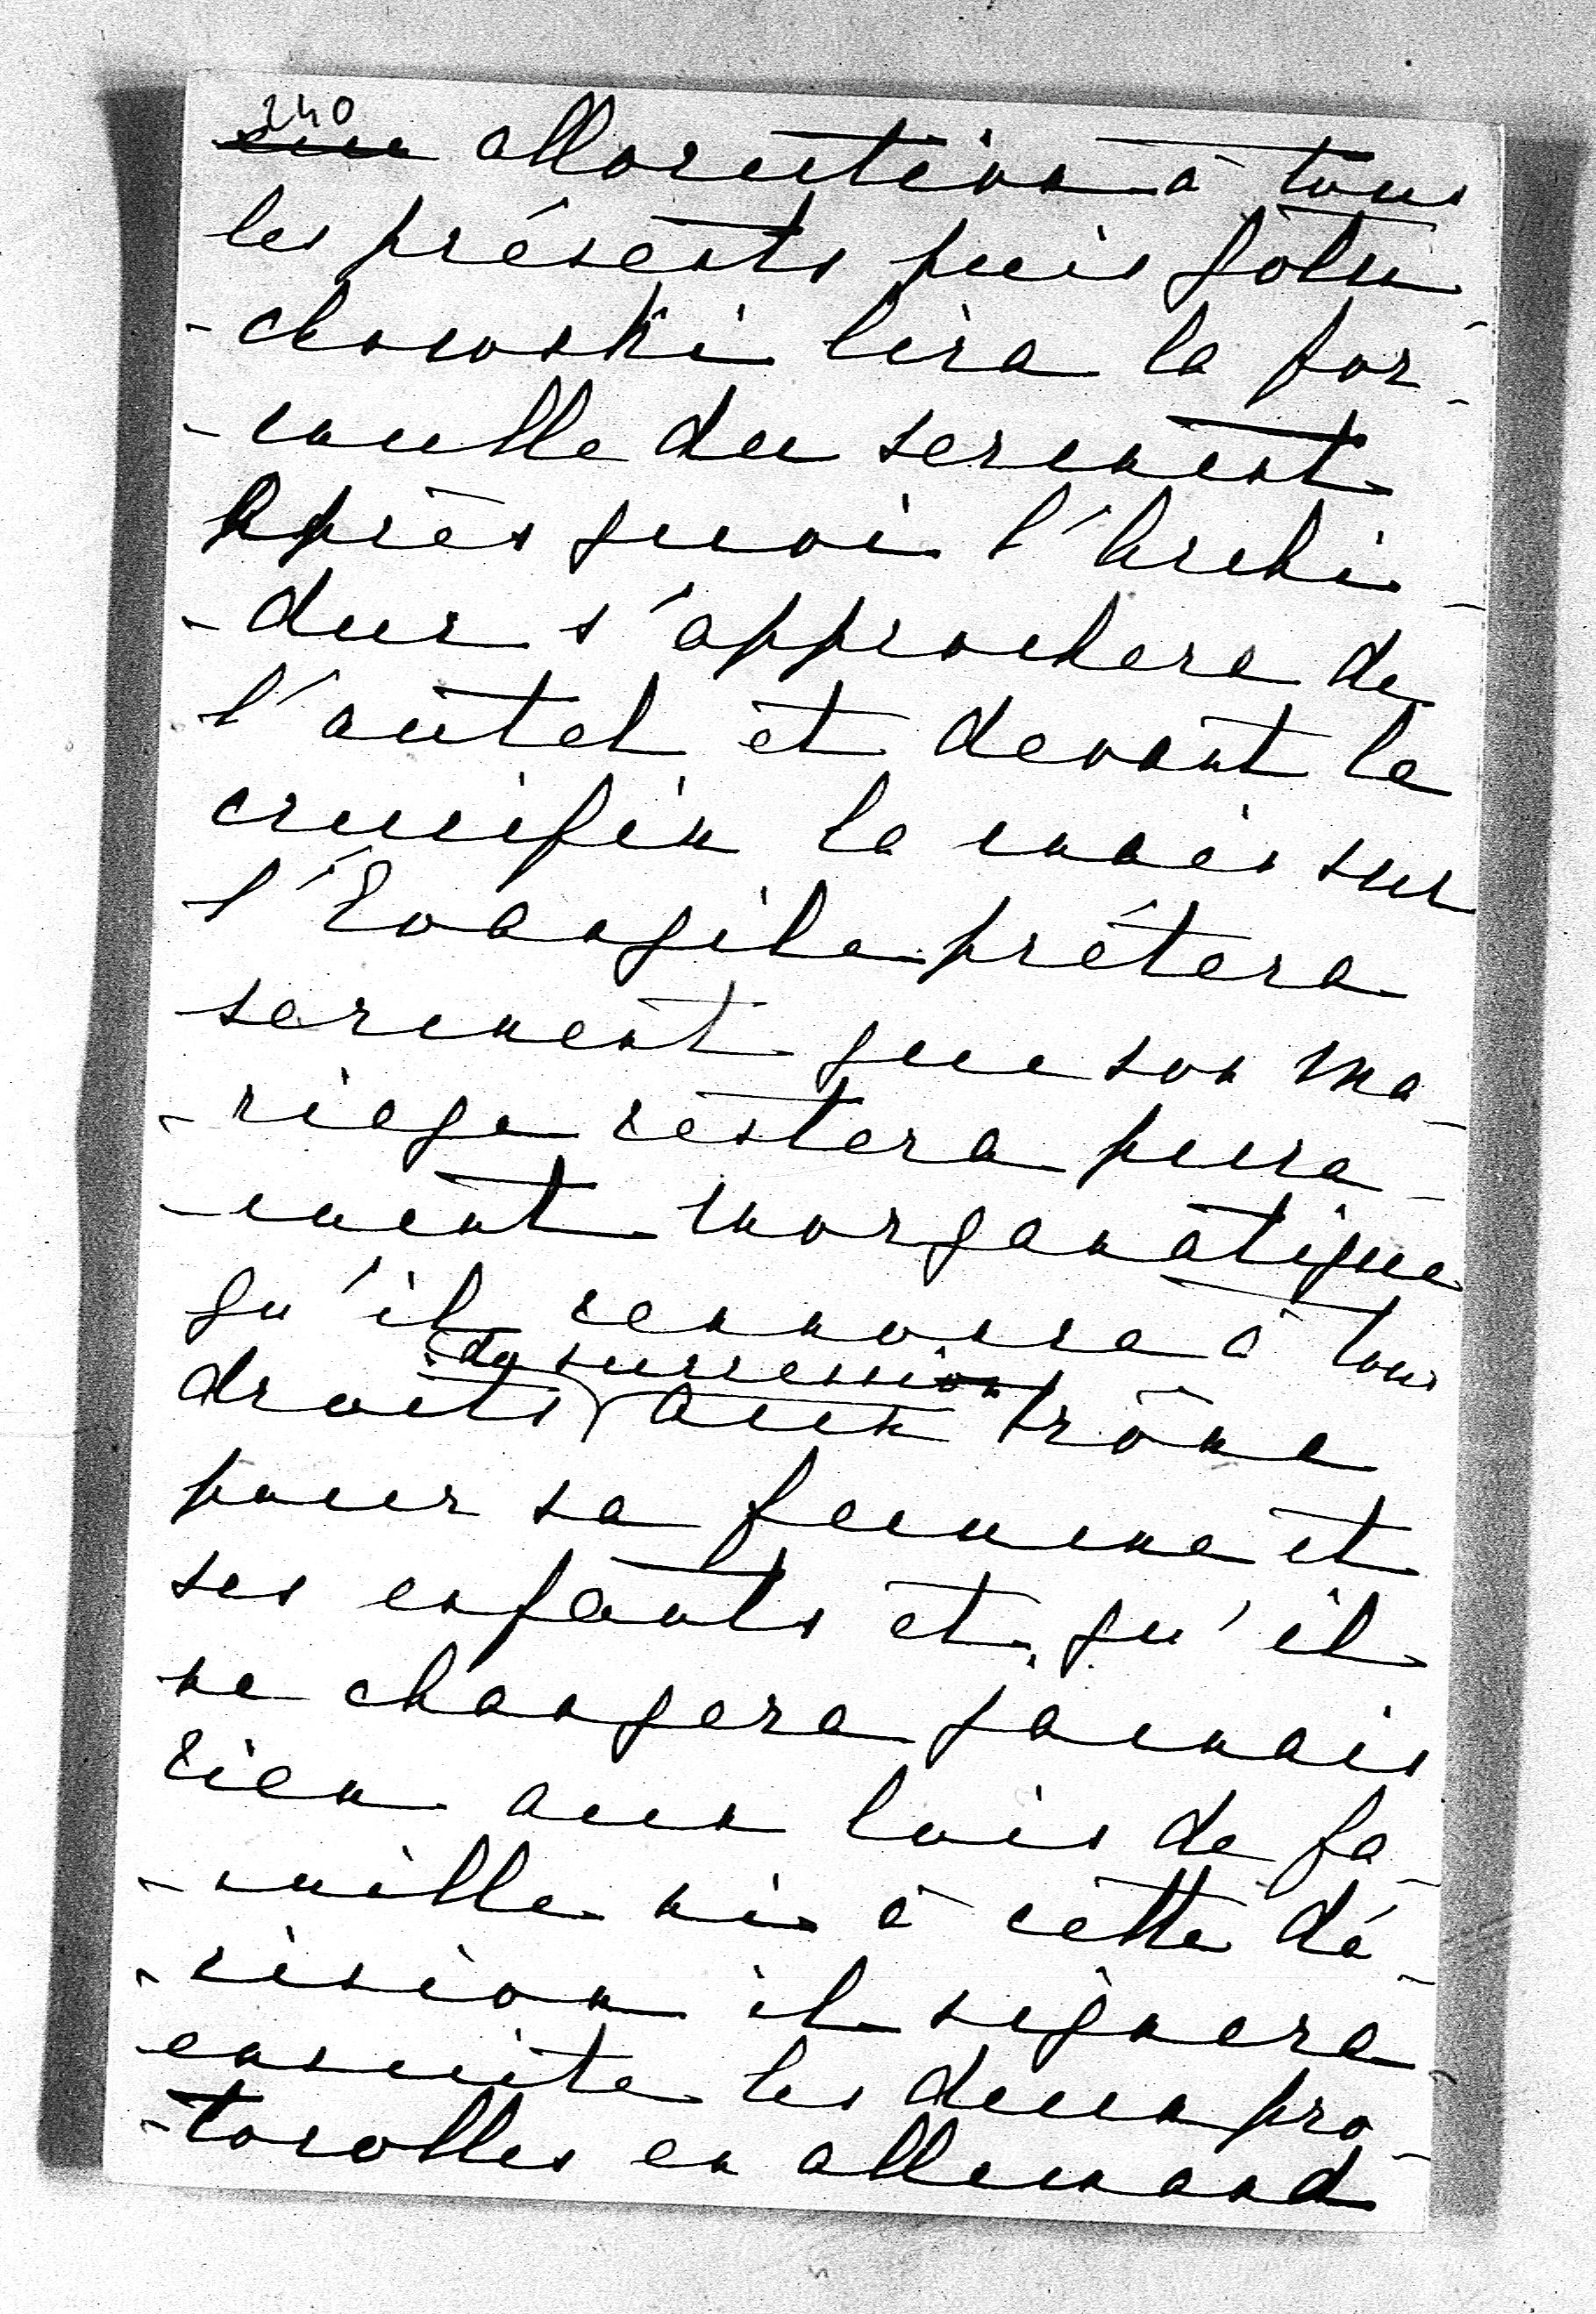 240
allocution à tous
les présents puis Golu-
-chowski lira la for-
-mulle du serment
Après quoi l'Archi-
-duc s'approchera de
l'autel et devant le
crucifix la main sur
l'Evangile prétera
serment que son ma-
-riage restera pure-
-ment morganatique
qu'il renonce à tous
de succession
droits aux trône
pour sa femme et
ses enfants et qu'il
ne changera jamais
rien aux lois de fa-
-mille ni à cette dé-
-cision il signera
ensuite les deux pro-
-tocolles en allemand